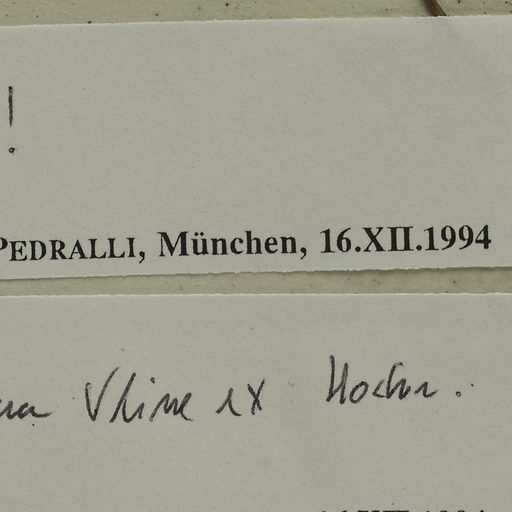 !
PEDRALLI, München, 16.XII.1994
Uline ex Hochr.